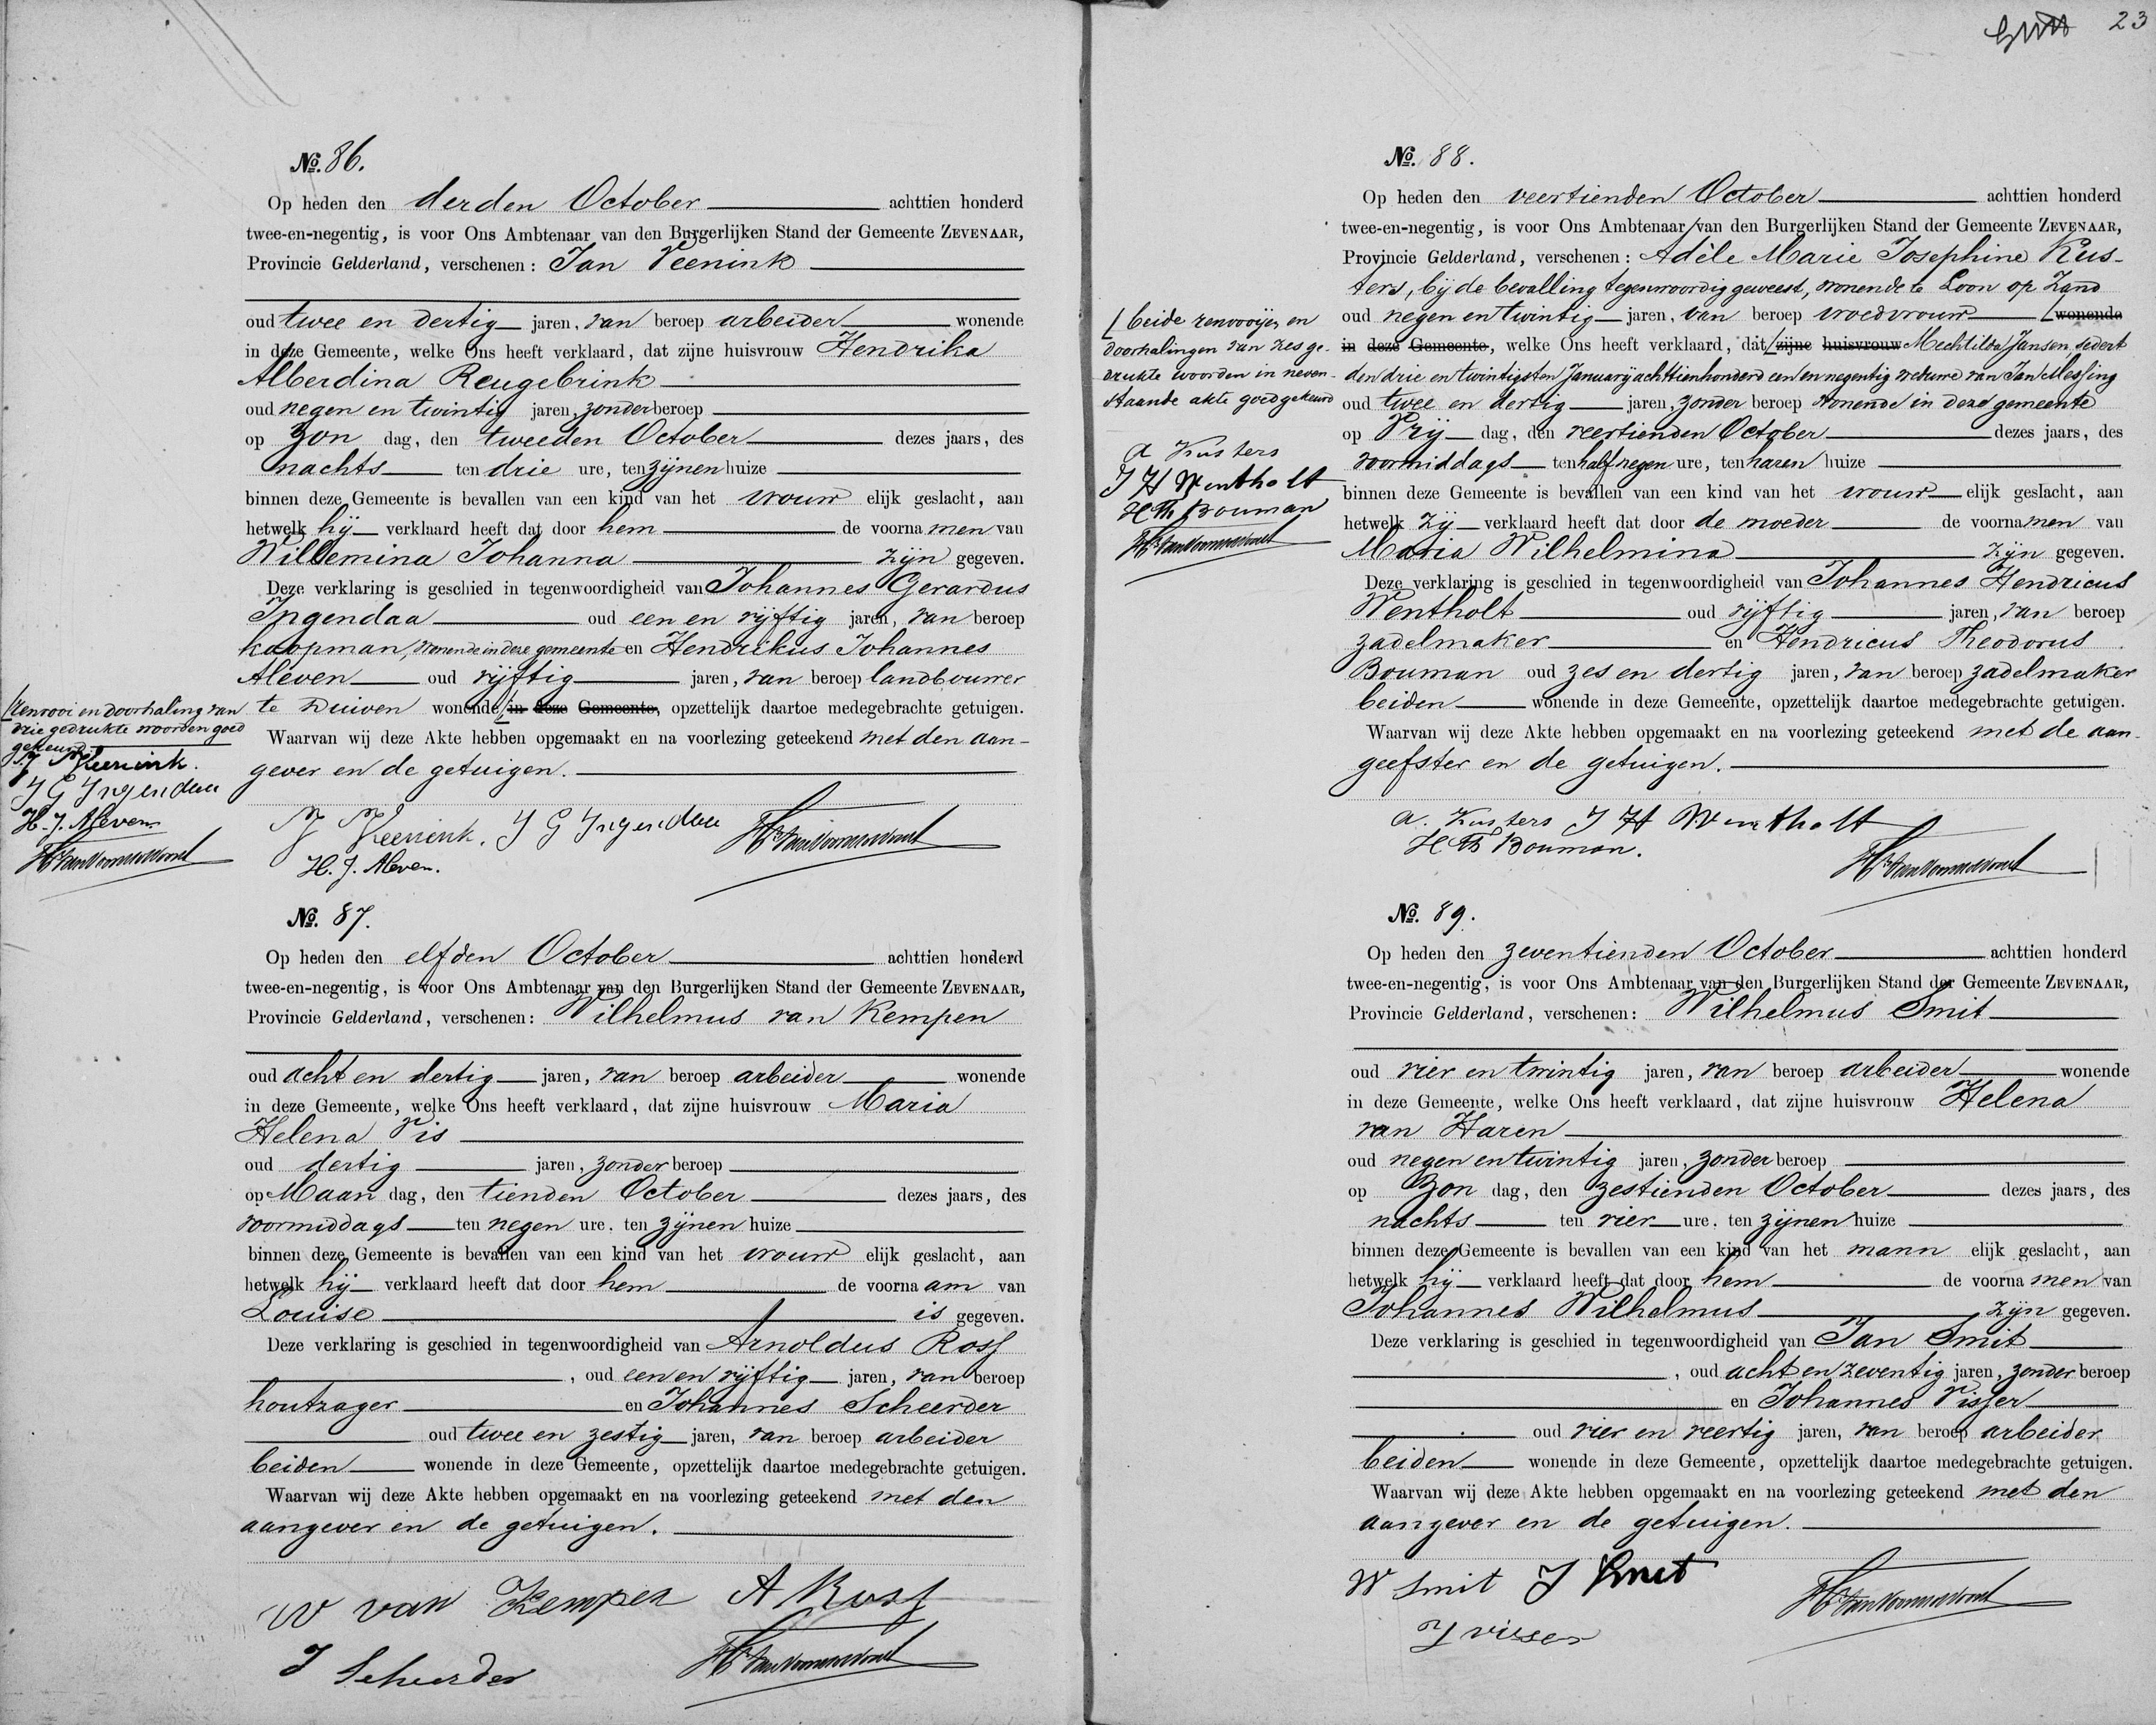 23
No. 86.
Op heden den derden October achttien honderd
twee-en-negentig, is voor Ons Ambtenaar van den Burgerlijken Stand der Gemeente ZEVENAAR,
Provincie Gelderland, verschenen: Jan Veenink
oud twee en dertig jaren, van beroep arbeider wonende
in deze Gemeente, welke Ons heeft verklaard, dat zijne huisvrouw Hendrika
Alberdina Reugebrink
oud negen en twintig jaren, zonder beroep
op Zon dag, den tweeden October dezes jaars, des
nachts ten drie ure, ten zijnen huize
binnen deze Gemeente is bevallen van een kind van het vrouw elijk geslacht, aan
hetwelk hij verklaard heeft dat door hem de voorna men van
Willemina Johanna zijn gegeven.
Deze verklaring is geschied in tegenwoordigheid van Johannes Gerardus
Ingendaa oud een en vijftig jaren, van beroep
koopman, wonende in deze gemeente en Hendrikus Johannes
Aleven oud vijftig jaren, van beroep landbouwer
te Duiven wonende in deze Gemeente, opzettelijk daartoe medegebrachte getuigen.
Waarvan wij deze Akte hebben opgemaakt en na voorlezing geteekend met den aan-
gever en de getuigen.
J Veenink. J G Ingendaa
H. J. Aleven.
renvooi en doorhaling van
drie gedrukte woorden goed
gekeurd
J Veenink.
J G Ingendaa
H. J. Aleven
No. 87.
Op heden den elfden October achttien honderd
twee-en-negentig, is voor Ons Ambtenaar van den Burgerlijken Stand der Gemeente ZEVENAAR,
Provincie Gelderland, verschenen: Wilhelmus van Kempen
oud acht en dertig jaren, van beroep arbeider wonende
in deze Gemeente, welke Ons heeft verklaard, dat zijne huisvrouw Maria
Helena Vis
oud dertig jaren, zonder beroep
op Maan dag, den tienden October dezes jaars, des
voormiddags ten negen ure, ten zijnen huize
binnen deze Gemeente is bevallen van een kind van het vrouw elijk geslacht, aan
hetwelk hij verklaard heeft dat door hem de voorna am van
Louise is gegeven.
Deze verklaring is geschied in tegenwoordigheid van Arnoldus Ross
, oud een en vijftig jaren, van beroep
houtzager en Johannes Scheerder
oud twee en zestig jaren, van beroep arbeider
beiden wonende in deze Gemeente, opzettelijk daartoe medegebrachte getuigen.
Waarvan wij deze Akte hebben opgemaakt en na voorlezing geteekend met den
aangever en de getuigen.
W van Kempen A Ross
J Scheerder
No. 88.
Op heden den veertienden October achttien honderd
twee-en-negentig, is voor Ons Ambtenaar van den Burgerlijken Stand der Gemeente ZEVENAAR,
Provincie Gelderland, verschenen: Adèle Marie Josephine Kus-
ters, bij de bevalling tegenwoordig geweest, wonende te Loon op Zand
oud negen en twintig jaren, van beroep vroedvrouw wonende
in deze Gemeente, welke Ons heeft verklaard, dat zijne huisvrouw Mechtilda Jansen, sedert
den drie en twintigsten Januarij achttienhonderd een en negentig weduwe van Jan Messing
oud twee en dertig jaren, zonder beroep wonende in deze gemeente
op Vrij dag, den veertienden October dezes jaars, des
voormiddags ten half negen ure, ten haren huize
binnen deze Gemeente is bevallen van een kind van het vrouw elijk geslacht, aan
hetwelk zij verklaard heeft dat door de moeder de voorna men van
Maria Wilhelmina zijn gegeven.
Deze verklaring is geschied in tegenwoordigheid van Johannes Hendricus
Wentholt oud vijftig jaren, van beroep
zadelmaker en Hendricus Theodorus
Bouman oud zes en dertig jaren, van beroep zadelmaker
beiden wonende in deze Gemeente, opzettelijk daartoe medegebrachte getuigen.
Waarvan wij deze Akte hebben opgemaakt en na voorlezing geteekend met de aan-
geefster en de getuigen.
A. Kusters J H Wentholt
H Th Bouman.
beide renvooijen en
doorhalingen van zes ge-
drukte woorden in neven-
staande akte goedgekeurd
A Kusters
J H Wentholt
H Th Bouman
No. 89.
Op heden den zeventienden October achttien honderd
twee-en-negentig, is voor Ons Ambtenaar van den Burgerlijken Stand der Gemeente ZEVENAAR,
Provincie Gelderland, verschenen: Wilhelmus Smit
oud vier en twintig jaren, van beroep arbeider wonende
in deze Gemeente, welke Ons heeft verklaard, dat zijne huisvrouw Helena
van Haren
oud negen en twintig jaren, zonder beroep
op Zon dag, den zestienden October dezes jaars, des
nachts ten vier ure, ten zijnen huize
binnen deze Gemeente is bevallen van een kind van het mann elijk geslacht, aan
hetwelk hij verklaard heeft dat door hem de voorna men van
Johannes Wilhelmus zijn gegeven.
Deze verklaring is geschied in tegenwoordigheid van Jan Smit
, oud acht en zeventig jaren, zonder beroep
en Johannes Visser
oud vier en veertig jaren, van beroep arbeider
beiden wonende in deze Gemeente, opzettelijk daartoe medegebrachte getuigen.
Waarvan wij deze Akte hebben opgemaakt en na voorlezing geteekend met den
aangever en de getuigen.
W Smit J Smit
J visser